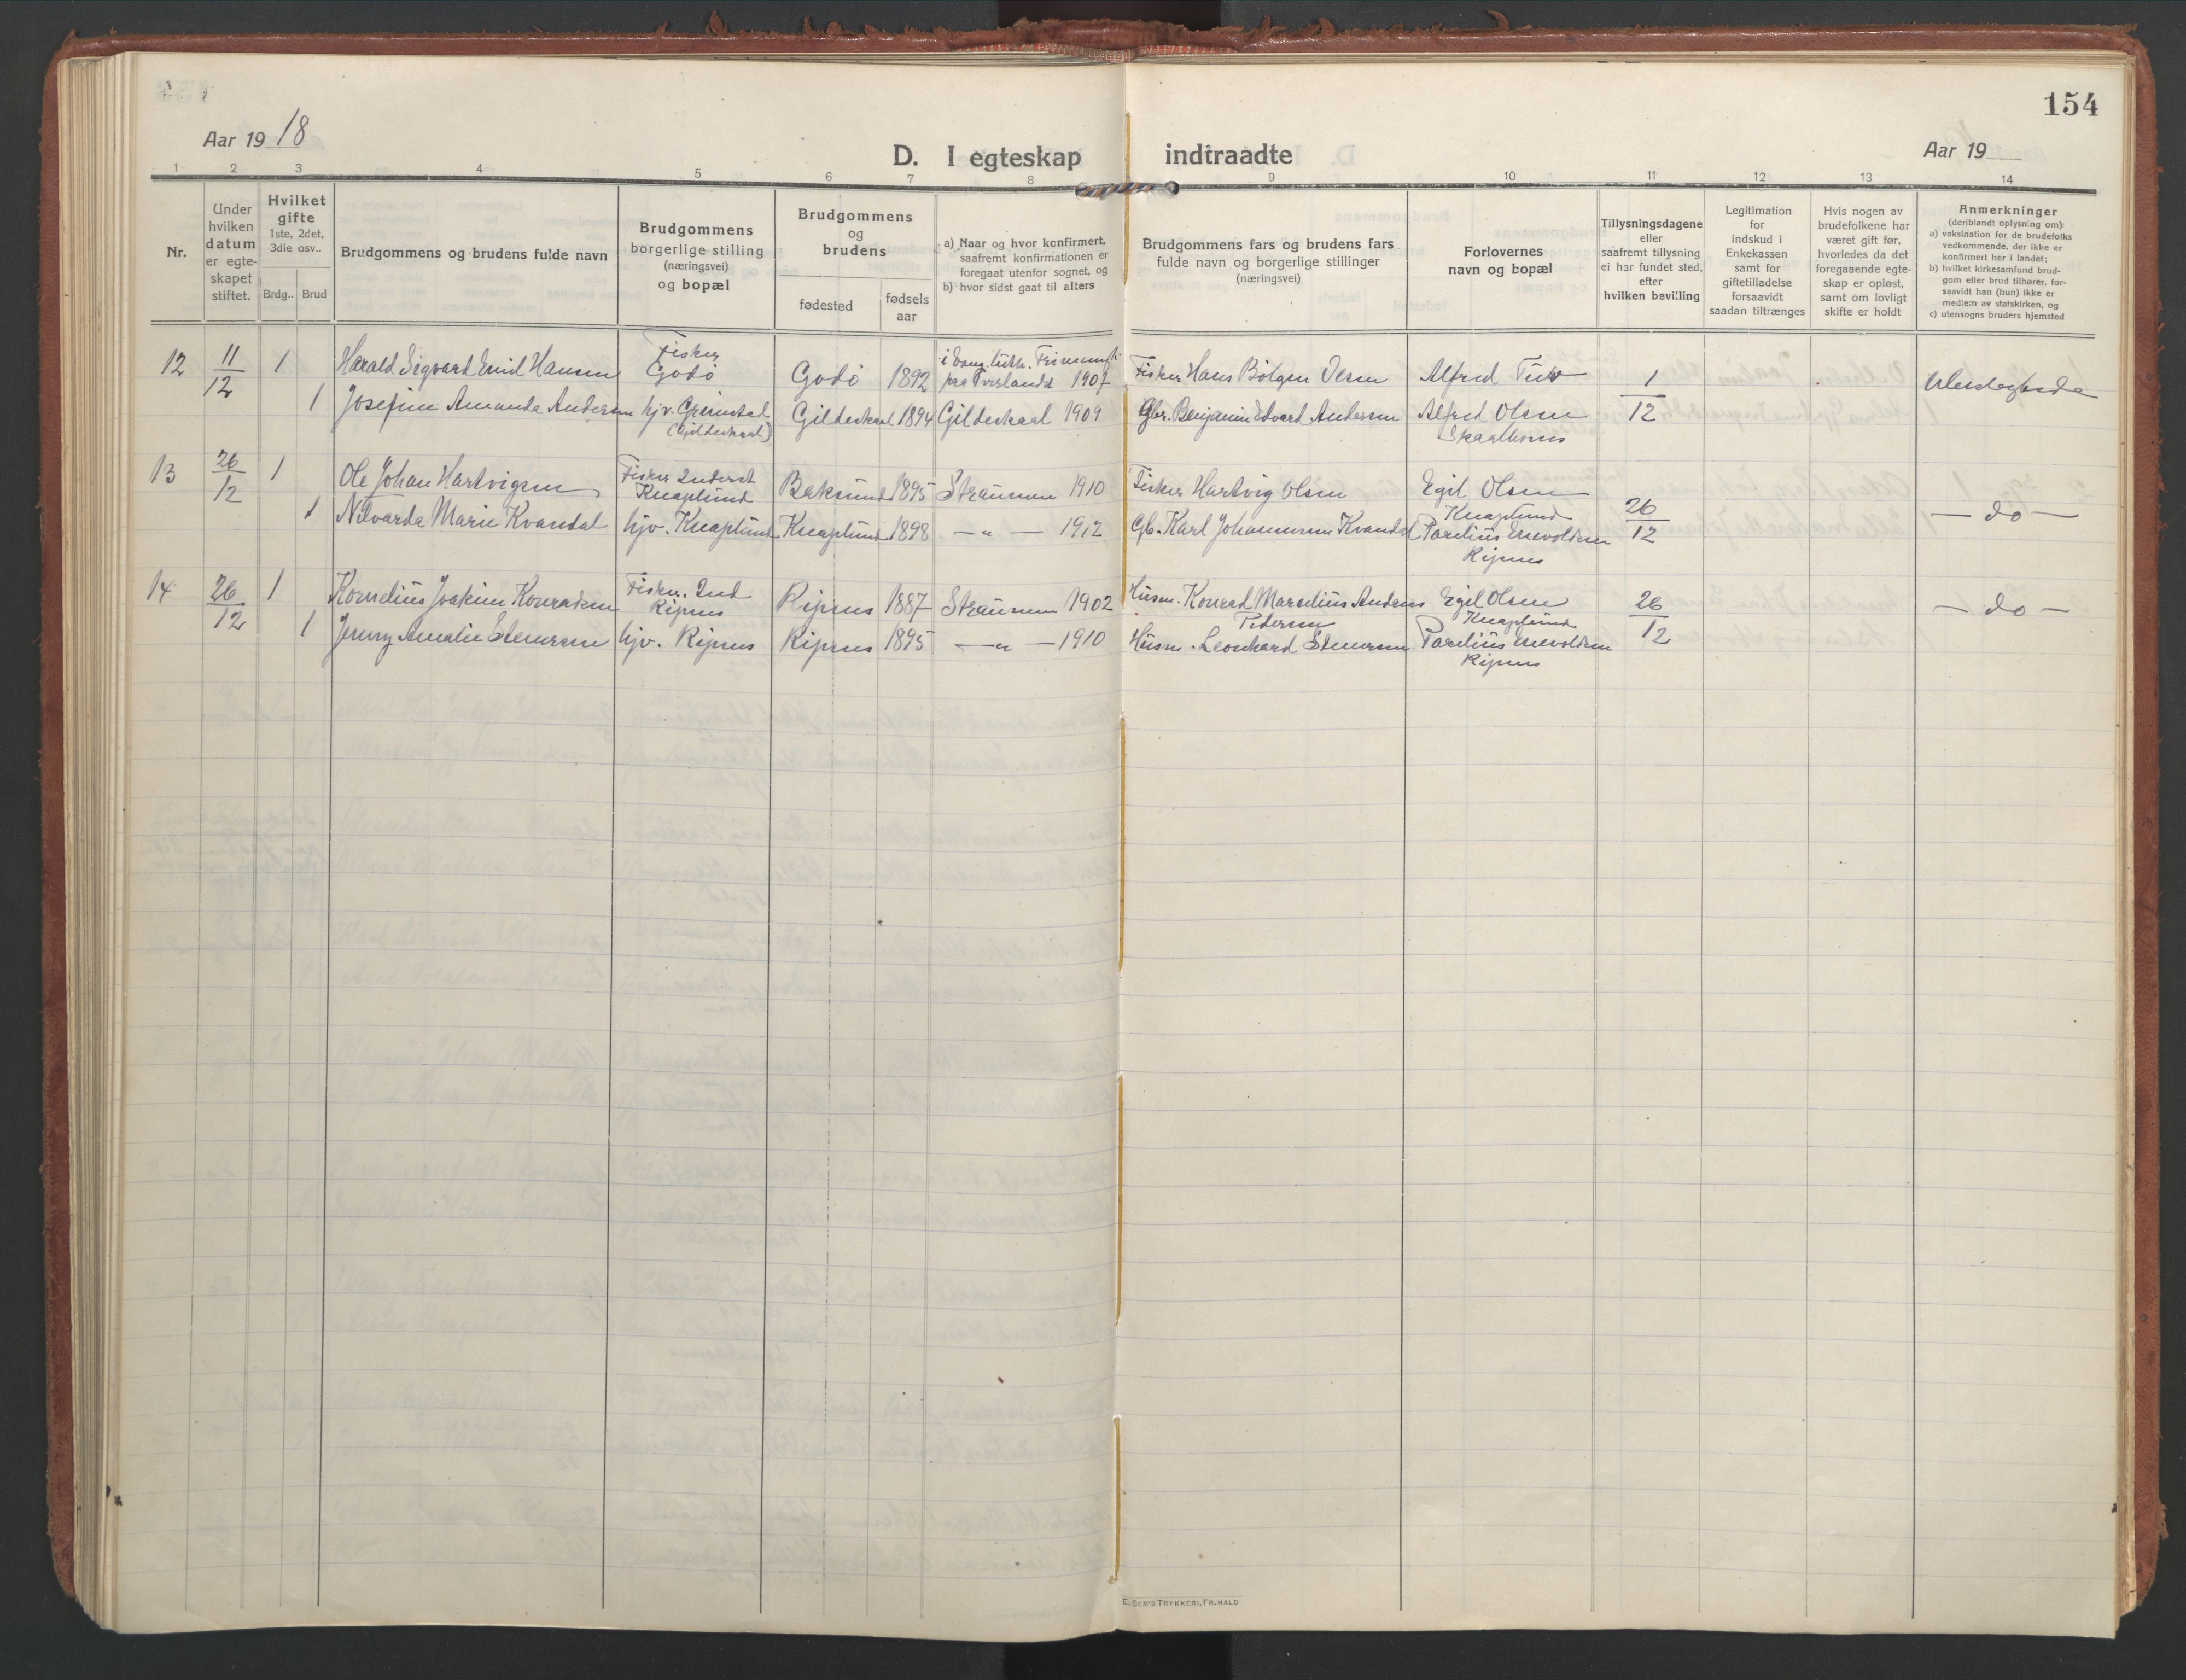 154
Aar 1918
D. I egteskap indtraadte
Aar 19
1 2 3 4 5 6 7 8 9 10 11 12 13 14
Nr.
Under hvilken datum er egte-skapet stiftet.
Hvilket gifte
1ste, 2det, 3die osv..
Brdg.. Brud
Brudgommens og brudens fulde navn
Brudgommens
borgerlige stilling
(næringsvei)
og bopæl
Brudgommens
og
brudens
fødested
fødsels
aar
a) Naar og hvor konfirmert,
saafremt konfirmationen er
foregaat utenfor sognet, og
b) hvor sidst gaat til alters
Brudgommens fars og brudens fars
fulde navn og borgerlige stillinger
(næringsvei)
Forlovernes
navn og bopæl
Tillysningsdagene
eller
saafremt tillysning
ei har fundet sted,
efter
hvilken bevilling
Legitimation
for
indskud i
Enkekassen
samt for
giftetilladelse
forsaavidt
saadan tiltrænges
Hvis nogen av
brudefolkene har
været gift før,
hvorledes da det
foregaaende egte-
skap er opløst,
samt om lovligt
skifte er holdt
Anmerkninger
(deriblandt oplysning om):
a) vaksination for de brudefolks
vedkommende, der ikke er
konfirmert her i landet;
b) hvilket kirkesamfund brud-
gom eller brud tilhører, for-
saavidt han (hun) ikke er
medlem av statskirken, og
c) utensogns bruders hjemsted
12 11/12 1 Harald Sigvard Emil Hansen Fisker Godö Godö 1892 i Evang. luth. paa Tverlandet 1907 Fisker Hans Bölgen Alfred 1/12
1 Josefine Amanda Andersen hjv. Grimstad (Gildeskaal) Gildeskaal 1894 Gildeskaal 1909 Gbr. Benjamin Edvard Andersen Alfred Olsen
13 26/12 1 Ole Johan Hartvigsen Fisker Inderst Knaplund Baksund 1895 Straumen 1910 Fisker Hartvig Olsen Egil Olsen Knaplund 26/12 — do —
1 Nilvarda Marie Kvandal hjv. Knaplund Knaplund 1898 — " — 1912 Gb. Karl Johannesen Kvandal Parelius Enevoldsen Ripnes
14 26/12 1 Kornelius Joakim Konradsen Fisker. Ind Ripnes Ripnes 1887 Straumen 1902 Husm. Konrad Marselius Andreas Pedersen Egil Olsen Knaplund 26/12 — do —
1 Jenny Amalie Stenersen hjv. Ripnes Ripnes 1895 — " — 1910 Husm. Leonhard Stenersen Parelius Enevoldsen Ripnes
E. SEM'S TRYKKERI, FR.HALD